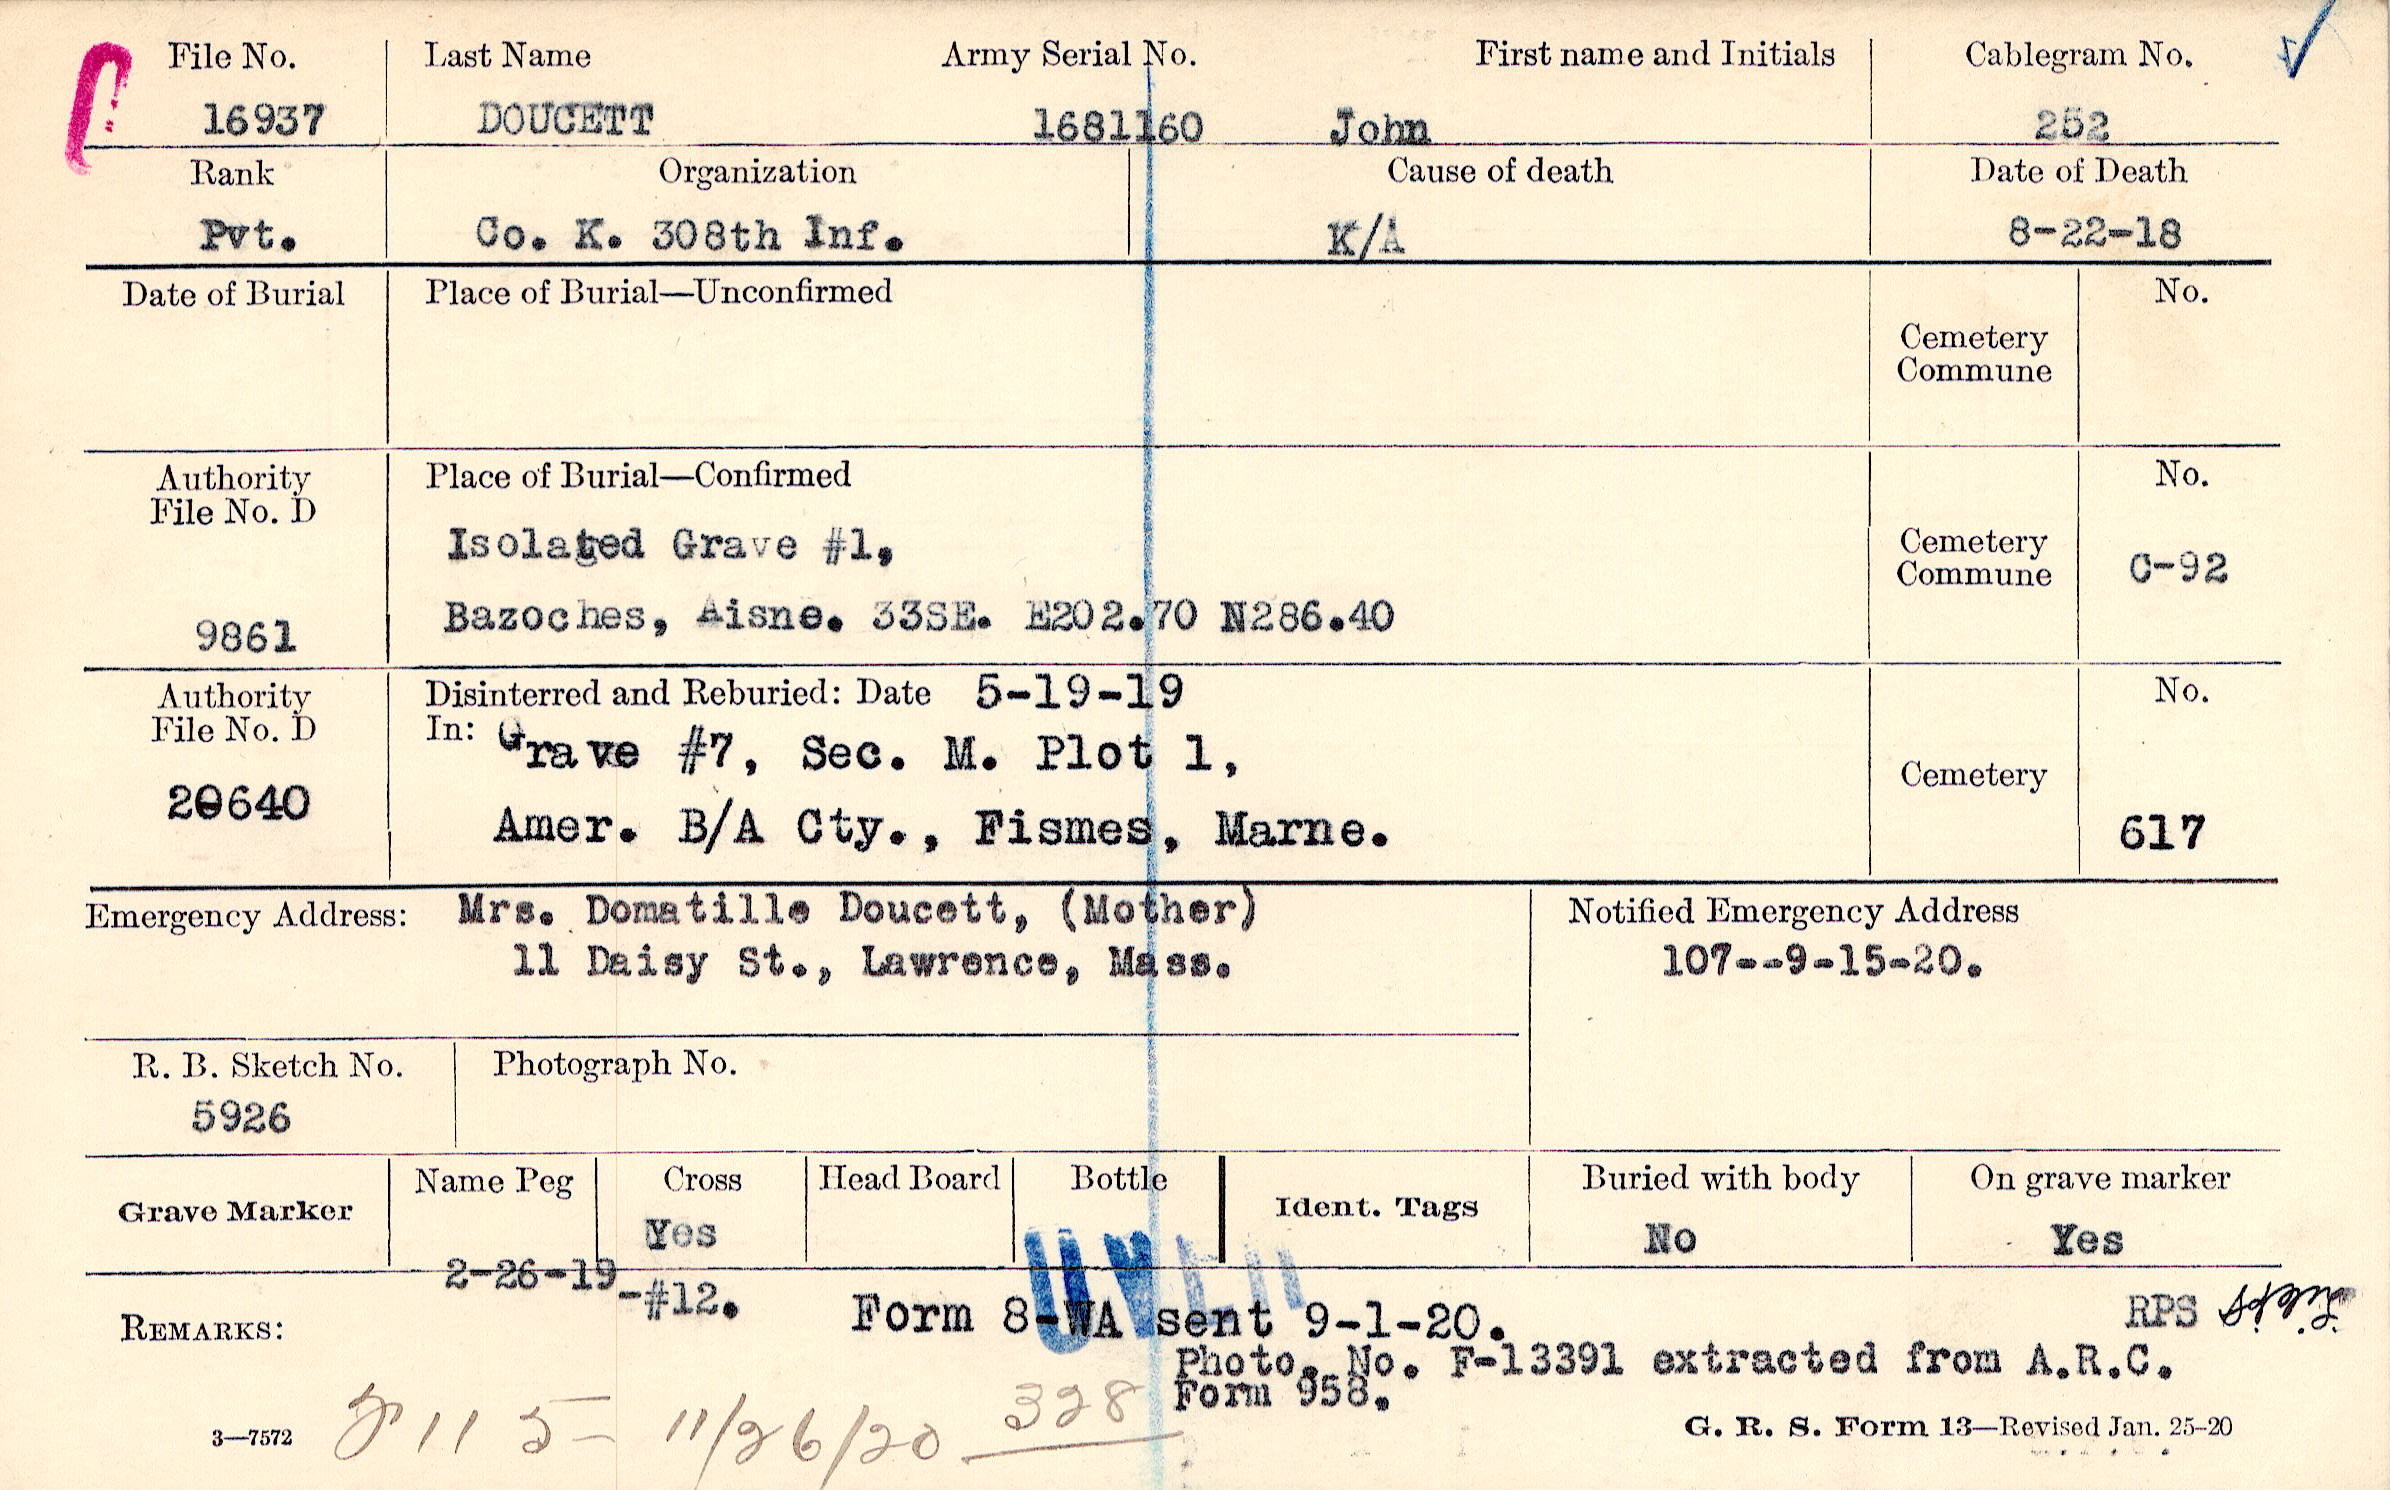 File No. Last Name Army Serial No. First name and Initials Cablegram No.
16937 DOUCETT 1681160 John 252
Rank Organization Cause of death Date of Death
Pvt. Co. K. 308th Inf. K/A 8-22-18
Date of Burial Place of Burial—Unconfirmed No.
Cemetery
Commune
Authority Place of Burial—Confirmed No.
File No. D
Isolated Grave #1,
Cemetery
Commune C-92
9861 Bazoches, Aisne. 33SE. E202.70 N286.40
Authority Disinterred and Reburied: Date 5-19-19 No.
File No. D In: Grave #7, Sec. M. Plot 1,
Cemetery
20640 Amer. B/A Cty., Fismes, Marne. 617
Emergency Address: Mrs. Domatille Doucett, (Mother) Notified Emergency Address
11 Daisy St., Lawrence, Mass. 107--9-15-20.
R. B. Sketch No. Photograph No.
5926
Grave Marker Name Peg Cross Head Board Bottle Ident. Tags Buried with body On grave marker
Yes No Yes
2-26-19-#12.
REMARKS: Form 8-WA sent 9-1-20. RPS
Photo. No. F-13391 extracted from A.R.C.
Form 958.
3—7572 115 11/26/20 328 G. R. S. Form 13—Revised Jan. 25-20